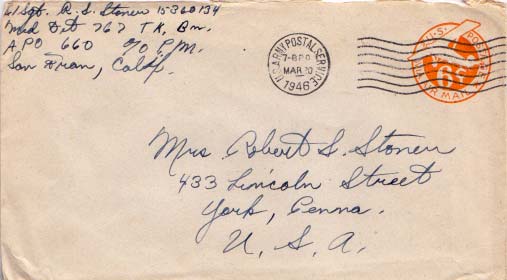 T/Sgt. R. S. Stoner 15360134
Med Det 767 TK. Bn.
APO 660 c/o P.M.
San Fran, Calif.
U.S. ARMY POSTAL SERVICE
7-8 PM
MAR
1946
U.S. POSTAGE
6¢
AIR MAIL
Mrs. Robert S. Stoner
433 Lincoln Street
York, Penna.
U. S. A.